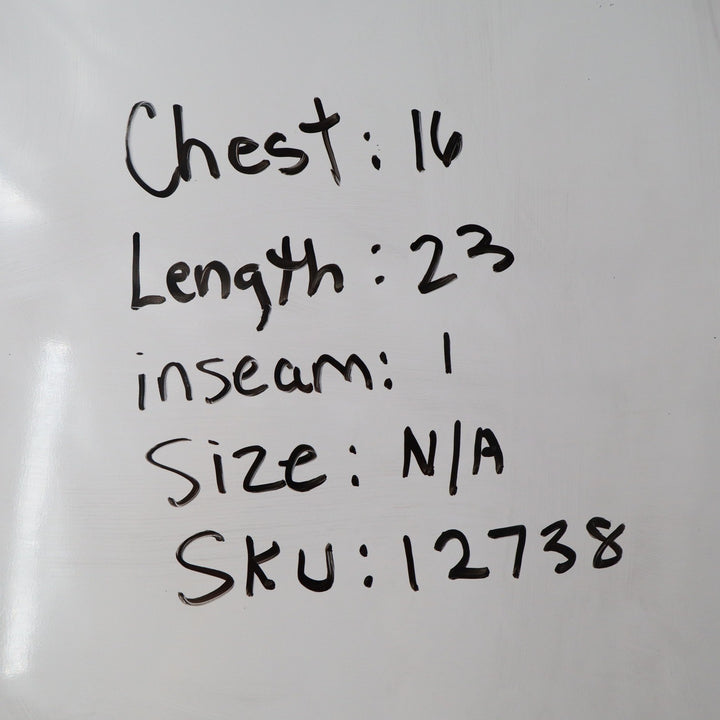 Chest: 16
Length: 23
inseam: 1
Size: N/A
SKU: 12738